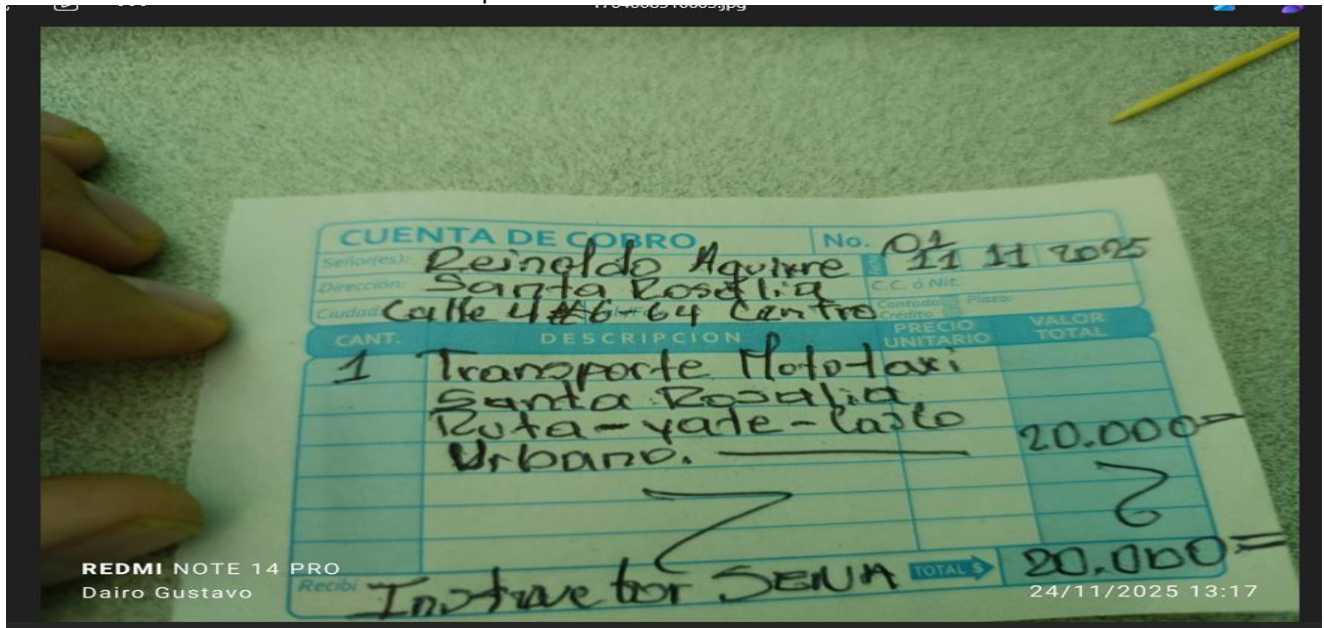 CUENTA DE COBRO No. 01
Señor(es): Reinaldo Aguirre 11 11 2025
Dirección: Santa Rosalia C.C. ó Nit.
Ciudad Calle 4#6-64 Centro Contado Plazo: Crédito
CANT. DESCRIPCION PRECIO UNITARIO VALOR TOTAL
1 Transporte Mototaxi
Santa Rosalia
Ruta-yate-Casco
Urbano. 20.000=
Recibí Instructor SENA TOTAL $ 20.000=
REDMI NOTE 14 PRO
Dairo Gustavo 24/11/2025 13:17